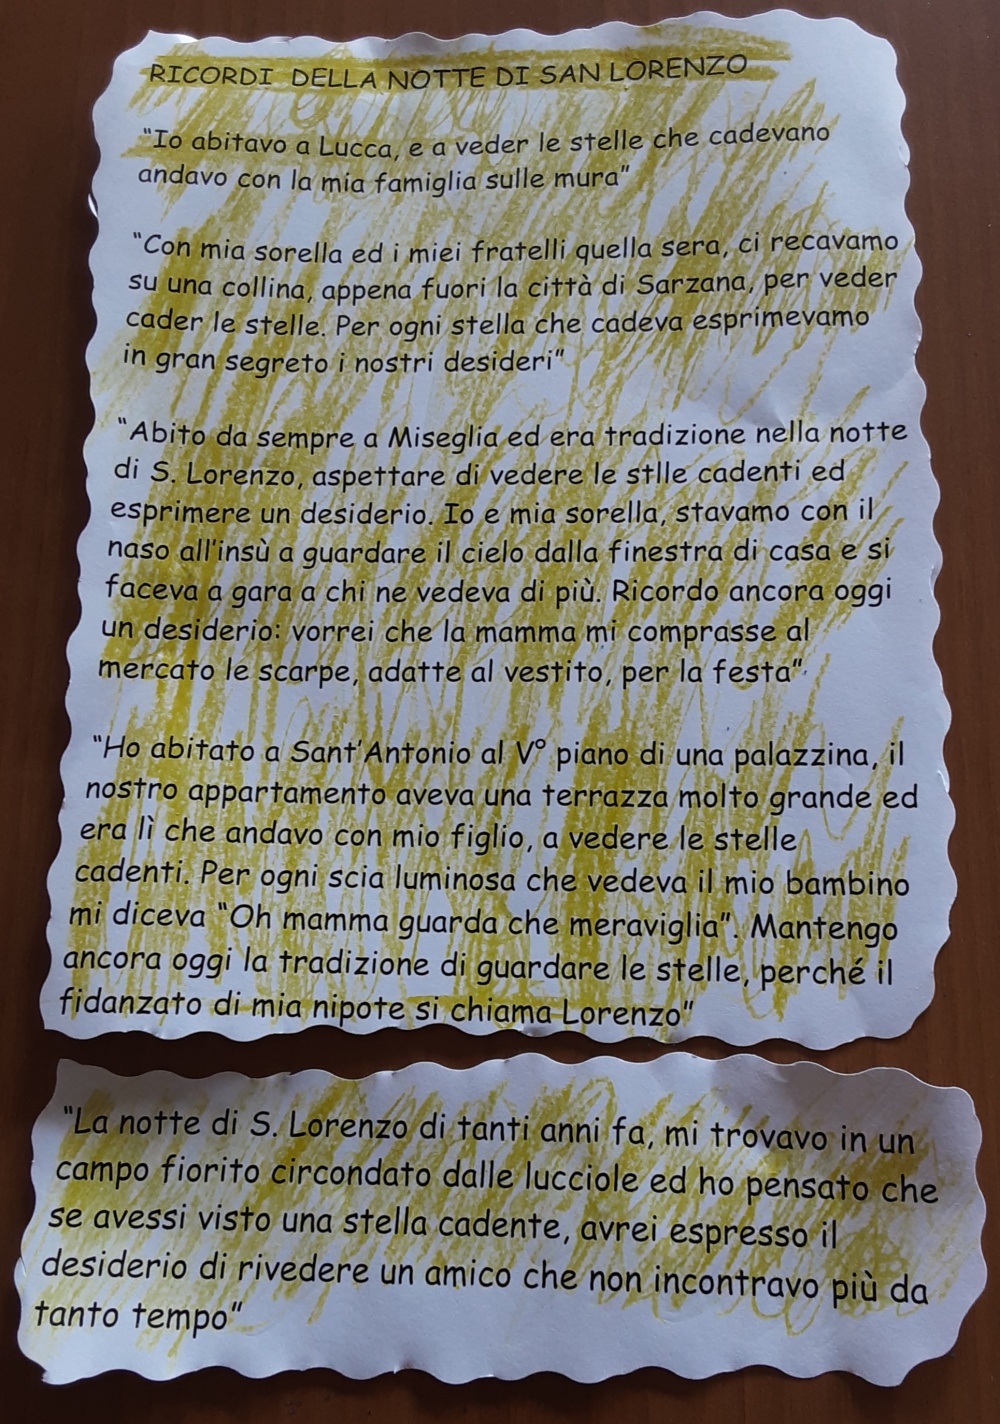 RICORDI DELLA NOTTE DI SAN LORENZO
"Io abitavo a Lucca, e a veder le stelle che cadevano
andavo con la mia famiglia sulle mura"
"Con mia sorella ed i miei fratelli quella sera, ci recavamo
su una collina, appena fuori la città di Sarzana, per veder
cader le stelle. Per ogni stella che cadeva esprimevamo
in gran segreto i nostri desideri"
"Abito da sempre a Miseglia ed era tradizione nella notte
di S. Lorenzo, aspettare di vedere le stlle cadenti ed
esprimere un desiderio. Io e mia sorella, stavamo con il
naso all'insù a guardare il cielo dalla finestra di casa e si
faceva a gara a chi ne vedeva di più. Ricordo ancora oggi
un desiderio: vorrei che la mamma mi comprasse al
mercato le scarpe, adatte al vestito, per la festa"
"Ho abitato a Sant'Antonio al V° piano di una palazzina, il
nostro appartamento aveva una terrazza molto grande ed
era lì che andavo con mio figlio, a vedere le stelle
cadenti. Per ogni scia luminosa che vedeva il mio bambino
mi diceva "Oh mamma guarda che meraviglia". Mantengo
ancora oggi la tradizione di guardare le stelle, perché il
fidanzato di mia nipote si chiama Lorenzo"
"La notte di S. Lorenzo di tanti anni fa, mi trovavo in un
campo fiorito circondato dalle lucciole ed ho pensato che
se avessi visto una stella cadente, avrei espresso il
desiderio di rivedere un amico che non incontravo più da
tanto tempo"